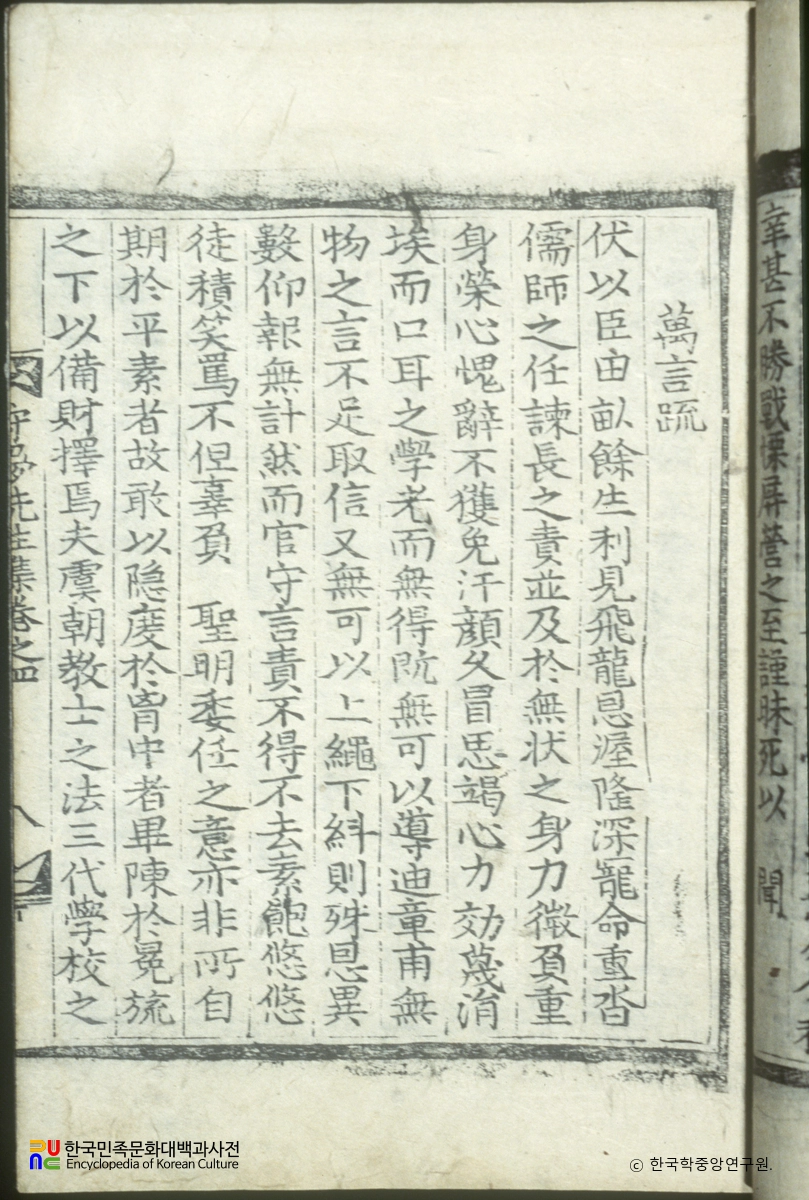 萬言疏
伏以臣田畝餘生利見飛龍恩渥隆深寵命重沓
儒師之任諫長之責並及於無状之身力微負重
身榮心愧辭不獲免汗顔久冒思竭心力効蔑涓
埃而口耳之學老而無得旣無可以導迪章甫無
物之言不足取信又無可以上繩下糾則殊恩異
數仰報無計然而官守言責不得不去素飽悠悠
徒積笑罵不但辜負 聖明委任之意亦非所自
期於平素者故敢以隐度於胷中者畢陳於冕旒
之下以備財擇焉夫虞朝教士之法三代學校之
守夢先生集卷之四
幸甚不勝戰慄屏營之至謹昧死以 聞
한국민족문화대백과사전
Encyclopedia of Korean Culture
ⓒ 한국학중앙연구원.